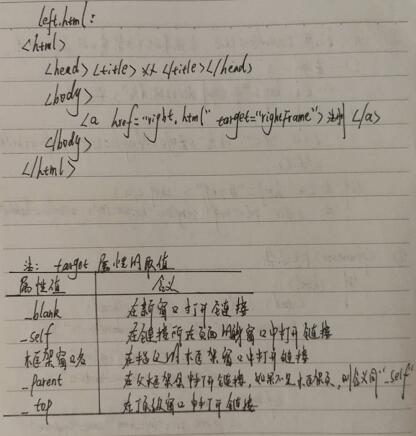 left.html:
<html>
<head><title>xx</title></head>
<body>
<a href="right.html" target="rightFrame">注册</a>
</body>
</html>
注: target 属性的取值
属性值 含义
_blank 在新窗口打开链接
_self 在链接所在页面的窗口中打开链接
框架窗口名 在指定的框架窗口中打开链接
_parent 在父框架集中打开链接,如果不是框架页,则含义同"_self"
_top 在顶级窗口中打开链接